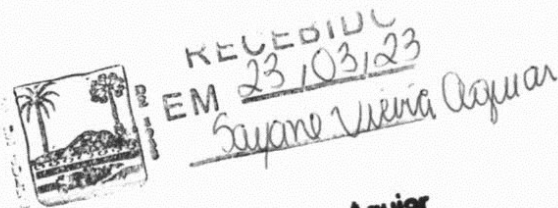 RECEBIDO
EM 23/03/23
Sayane Vieira Aguiar
Aguiar